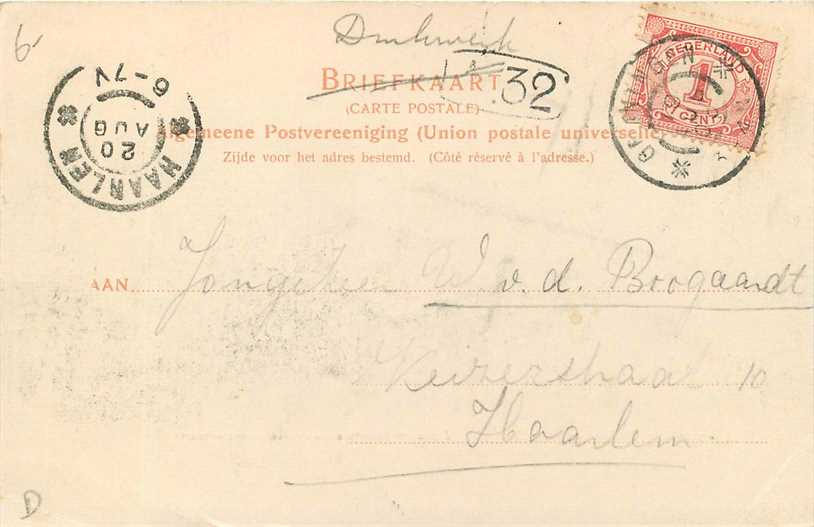 6
Drukwerk
BRIEFKAART
32
(CARTE POSTALE)
Algemeene Postvereeniging (Union postale universelle)
Zijde voor het adres bestemd. (Côté réservé à l'adresse.)
NEDERLAND
1
CENT
HAARLEM
20 AUG
6-7V
AAN Jongeheer W. v. d. Boogaardt
10
Haarlem
D